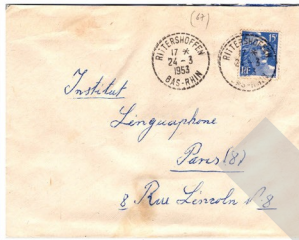 (67)
RITTERSHOFFEN
17 *
24 - 3
1953
BAS-RHIN
RITTERSHOFFEN
15F
RF
Institut
Linguaphone
Paris (8)
8 Rue Lincoln N° 8